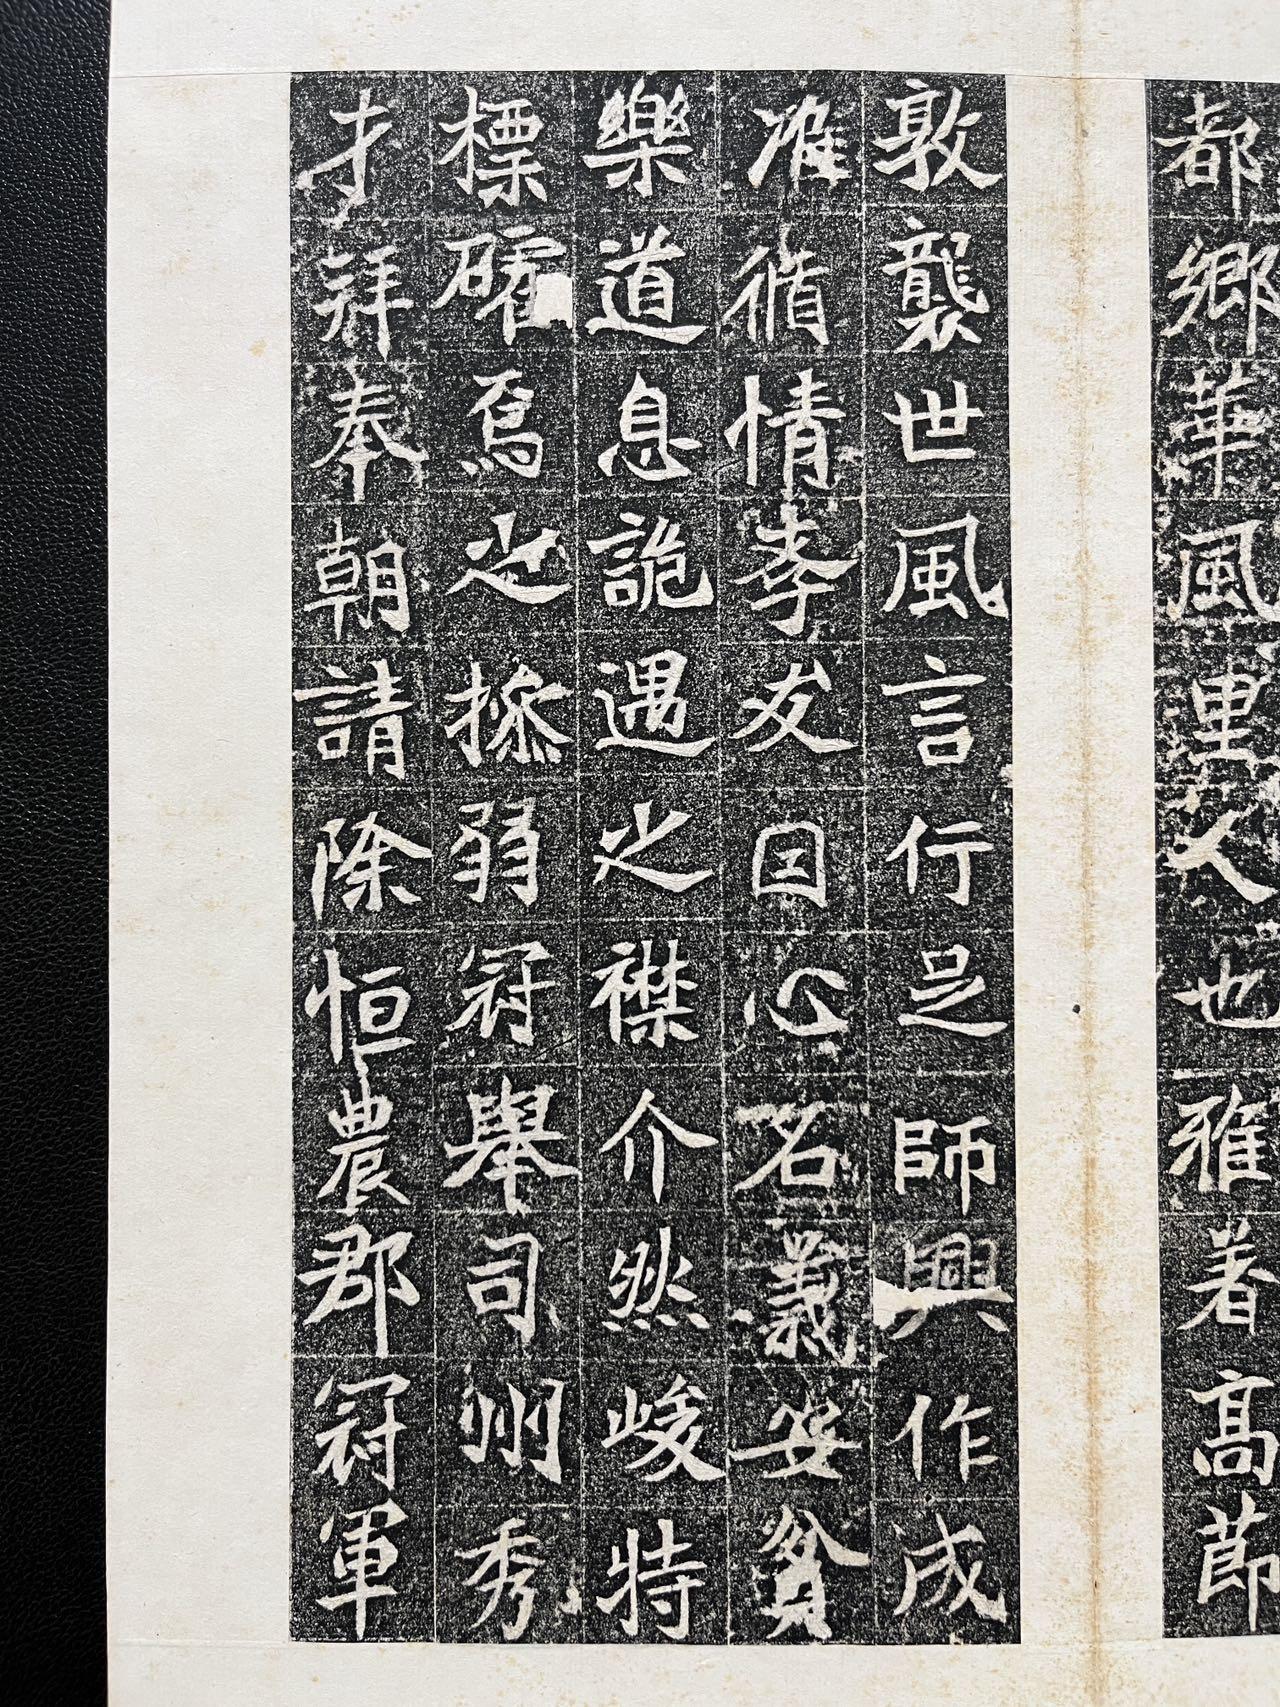 都鄉華風里人也雅著高節
敦襲世風言行足師興作成
准循情孝友因心名義安貧
樂道息詭遇之襟介然峻特
標確焉之操弱冠舉司州秀
才拜奉朝請除恒農郡冠軍